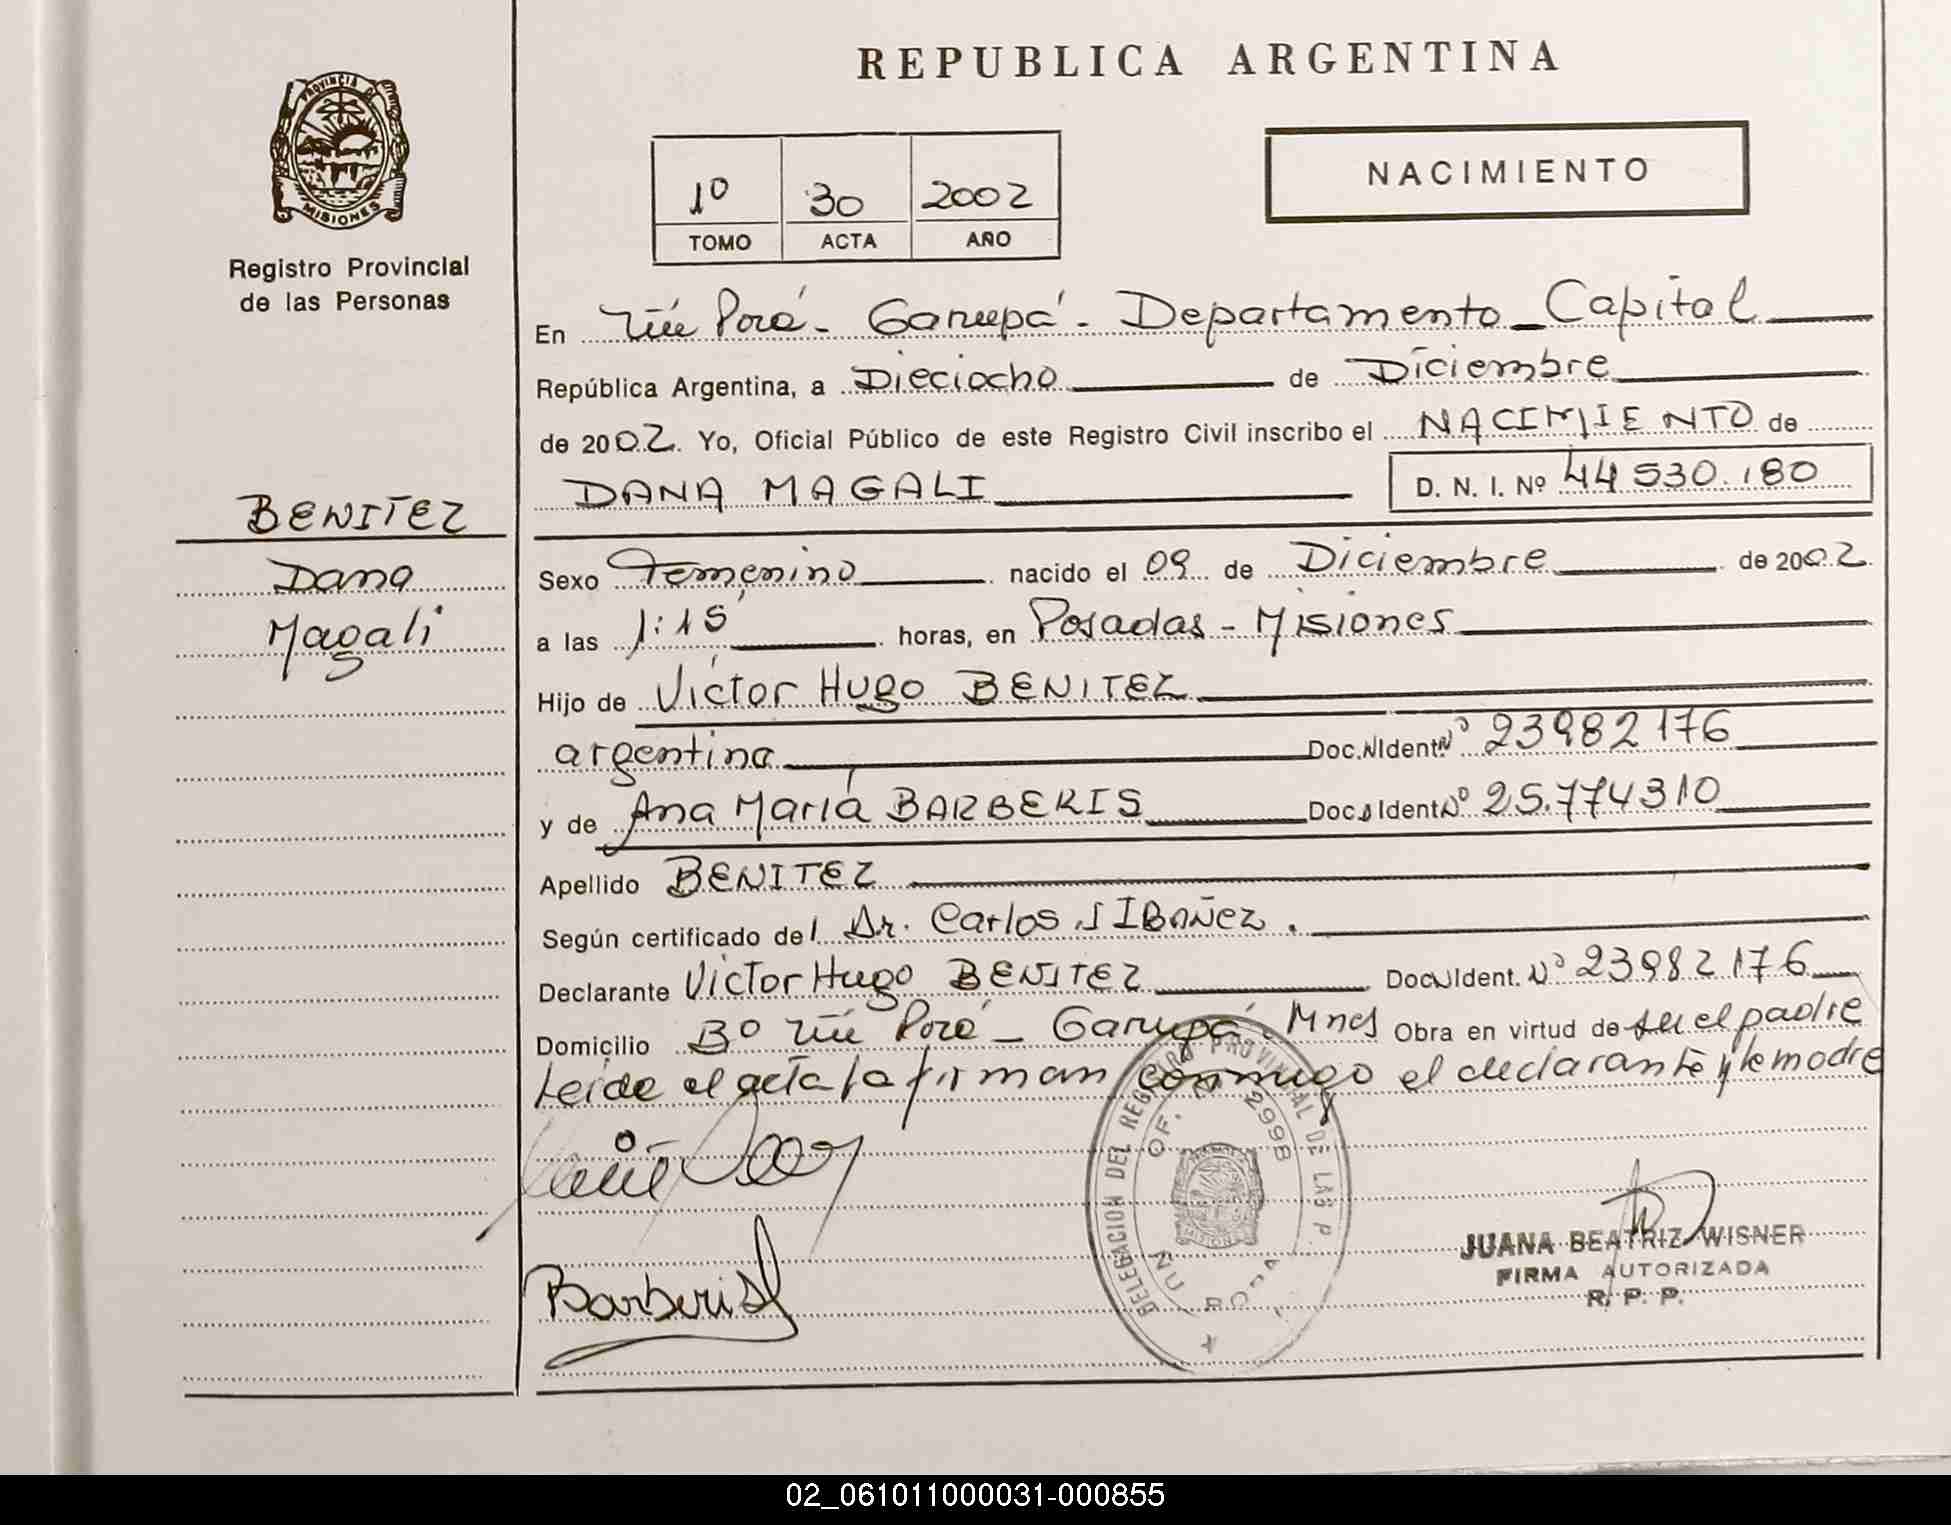 REPUBLICA ARGENTINA
PROVINCIA DE
MISIONES
Registro Provincial
de las Personas
1º 30 2002
TOMO ACTA AÑO
NACIMIENTO
En Ñu Porá - Garupá - Departamento Capital
República Argentina, a Dieciocho de Diciembre
de 2002. Yo, Oficial Público de este Registro Civil inscribo el NACIMIENTO de
DANA MAGALI D. N. I. Nº 44 530.180
BENITEZ
Dana
Magali
Sexo Femenino nacido el 09 de Diciembre de 2002
a las 1:15 horas, en Posadas - Misiones
Hijo de Víctor Hugo BENITEZ
argentina Doc.NIdent.Nº 23982176
y de Ana María BARBERIS Doc.NIdent.Nº 25.774310
Apellido BENITEZ
Según certificado del Dr. Carlos J IBAÑEZ.
Declarante Victor Hugo BENITEZ Doc.NIdent. Nº 23982176
Domicilio Bº Ñu Porá - Garupá - Mnes Obra en virtud de su el padre
Leída el acta la firman conmigo el declarante y la madre
DELEGACION DEL REGISTRO PROVINCIAL DE LAS P.
OF. 2998
ÑU PORA
MISIONES
Barberis
JUANA BEATRIZ WISNER
FIRMA AUTORIZADA
R. P. P.
02_061011000031-000855